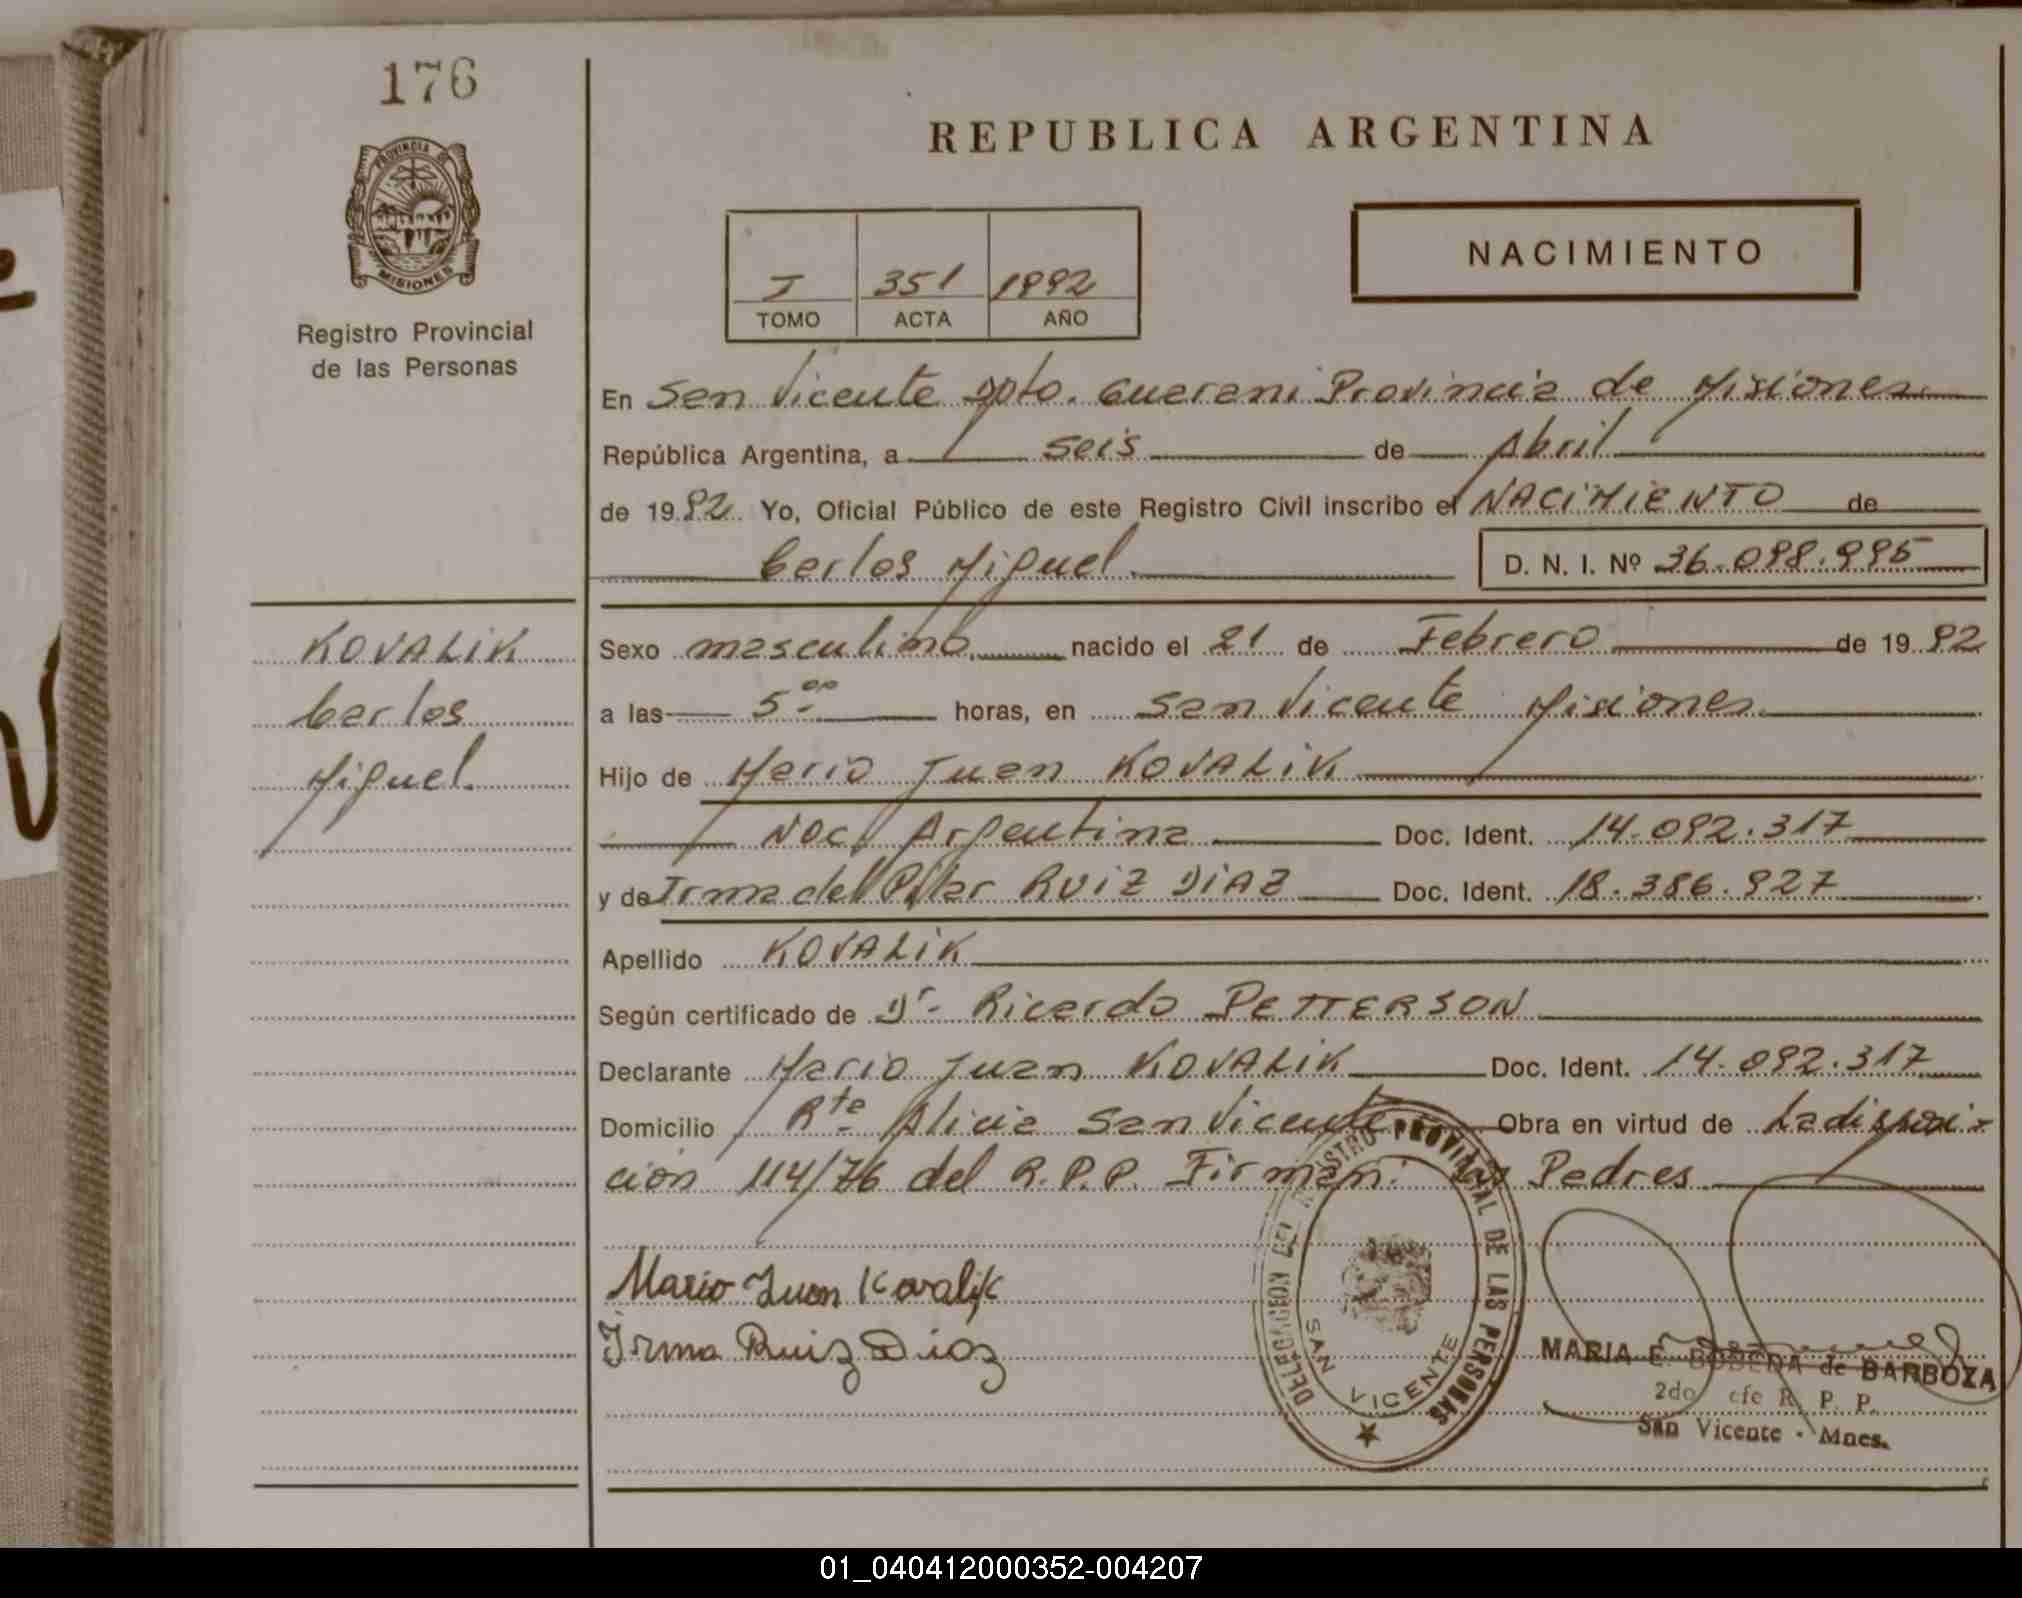 176
PROVINCIA DE
MISIONES
Registro Provincial
de las Personas
REPUBLICA ARGENTINA
NACIMIENTO
I 351 1992
TOMO ACTA AÑO
En San Vicente Dpto. Guarani Provincia de Misiones
República Argentina, a seis de Abril
de 1992 Yo, Oficial Público de este Registro Civil inscribo el NACIMIENTO de
Carlos Miguel D. N. I. Nº 36.098.995
KOVALIK
Carlos
Miguel.
Sexo masculino nacido el 21 de Febrero de 1992
a las 5 oo horas, en San Vicente Misiones
Hijo de Mario Juan KOVALIK
Nac. Argentina Doc. Ident. 14.092.317
y de Irma del Pilar RUIZ DIAZ Doc. Ident. 18.386.927
Apellido KOVALIK
Según certificado de Dr. Ricardo PETTERSON
Declarante Mario Juan KOVALIK Doc. Ident. 14.092.317
Domicilio Rte Alicia San Vicente Obra en virtud de La disposi-
ción 114/76 del R.P.P. Firman: Padres
Mario Juan Kovalik
Irma Ruiz Diaz
DELEGACION DEL REGISTRO PROVINCIAL DE LAS PERSONAS
SAN VICENTE
MARIA E. de BARBOZA
2do Jefe R. P. P.
San Vicente - Mnes.
01_040412000352-004207